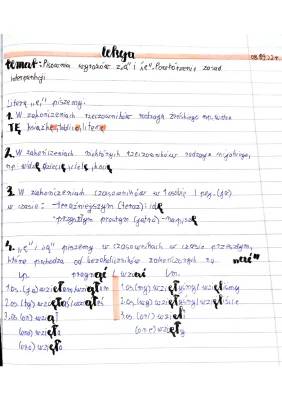 lekcja
08.09.22r.
temat: Pisownia wyrazów z „ą” i „ę”. Powtórzenie zasad
interpunkcji
Literę „ę” piszemy:
1. W zakończeniach rzeczowników rodzaju żeńskiego np. widzę
TĘ książkę, tablicę, literę
2. W zakończeniach niektórych rzeczowników rodzaju nijakiego,
np. widzę dziecię, cielę, imię
3. W zakończeniach czasowników w 1 osobie l. poj. (ja)
w czasie: - teraźniejszym (teraz) idę
- przyszłym prostym (jutro) - napiszę
4. „ę” i „ą” piszemy w czasownikach w czasie przeszłym,
które pochodzą od bezokoliczników zakończonych na "nąć"
l.p. pragnąć / wziąć l.m.
1.os. (ja) wzięłam/wziąłem 1.os. (my) wzięłyśmy/wzięliśmy
2.os. (ty) wzięłaś/wziąłeś 2.os. (wy) wzięłyście/wzięliście
3.os. (on) wziął 3.os. (oni) wzięli
(ona) wzięła (one) wzięły
(ono) wzięło